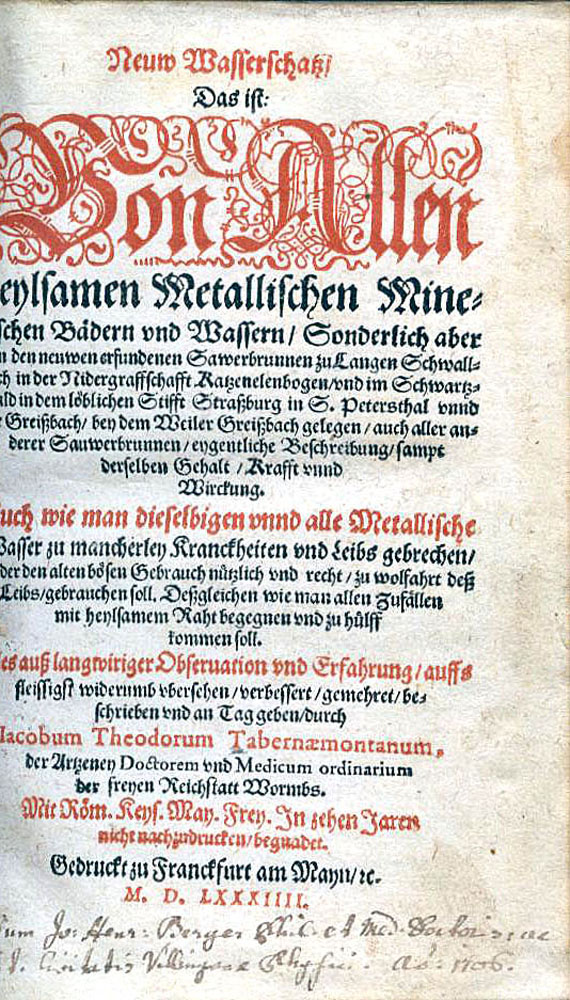 Neuw Wasserschatz/
Das ist:
Von Allen
eylsamen Metallischen Mine-
schen Bädern vnd Wassern/ Sonderlich aber
n den neuwen erfundenen Sawerbrunnen zu Langen Schwall-
ch in der Nidergraffschafft Katzenelenbogen/ vnd im Schwartz-
ald in dem löblichen Stifft Straßburg in S. Petersthal vnnd
Greißbach/ bey dem Weiler Greißbach gelegen/ auch aller an-
derer Sauwerbrunnen/ eygentliche Beschreibung/ sampt
derselben Gehalt/ Krafft vnnd
Wirckung.
uch wie man dieselbigen vnnd alle Metallische
Wasser zu mancherley Kranckheiten vnd Leibs gebrechen/
der den alten bösen Gebrauch nützlich vnd recht/ zu wolfahrt deß
Leibs/ gebrauchen soll. Deßgleichen wie man allen Zufällen
mit heylsamem Raht begegnen vnd zu hülff
kommen soll.
les auß langwiriger Obseruation vnd Erfahrung/ auffs
fleissigst widerumb vbersehen/ verbessert/ gemehret/ be-
schrieben vnd an Tag geben/ durch
Iacobum Theodorum Tabernæmontanum,
der Artzeney Doctorem vnd Medicum ordinarium
der freyen Reichstatt Wormbs.
Mit Röm. Keys. May. Frey. In zehen Jaren
nicht nachzudrucken/ begnadet.
Gedruckt zu Franckfurt am Mayn/ ꝛc.
M. D. LXXXIIII.
Jo: Henr: Berger Phil. et Med. Doctoris
Civitatis Villinganae Physici. Ao: 1706.